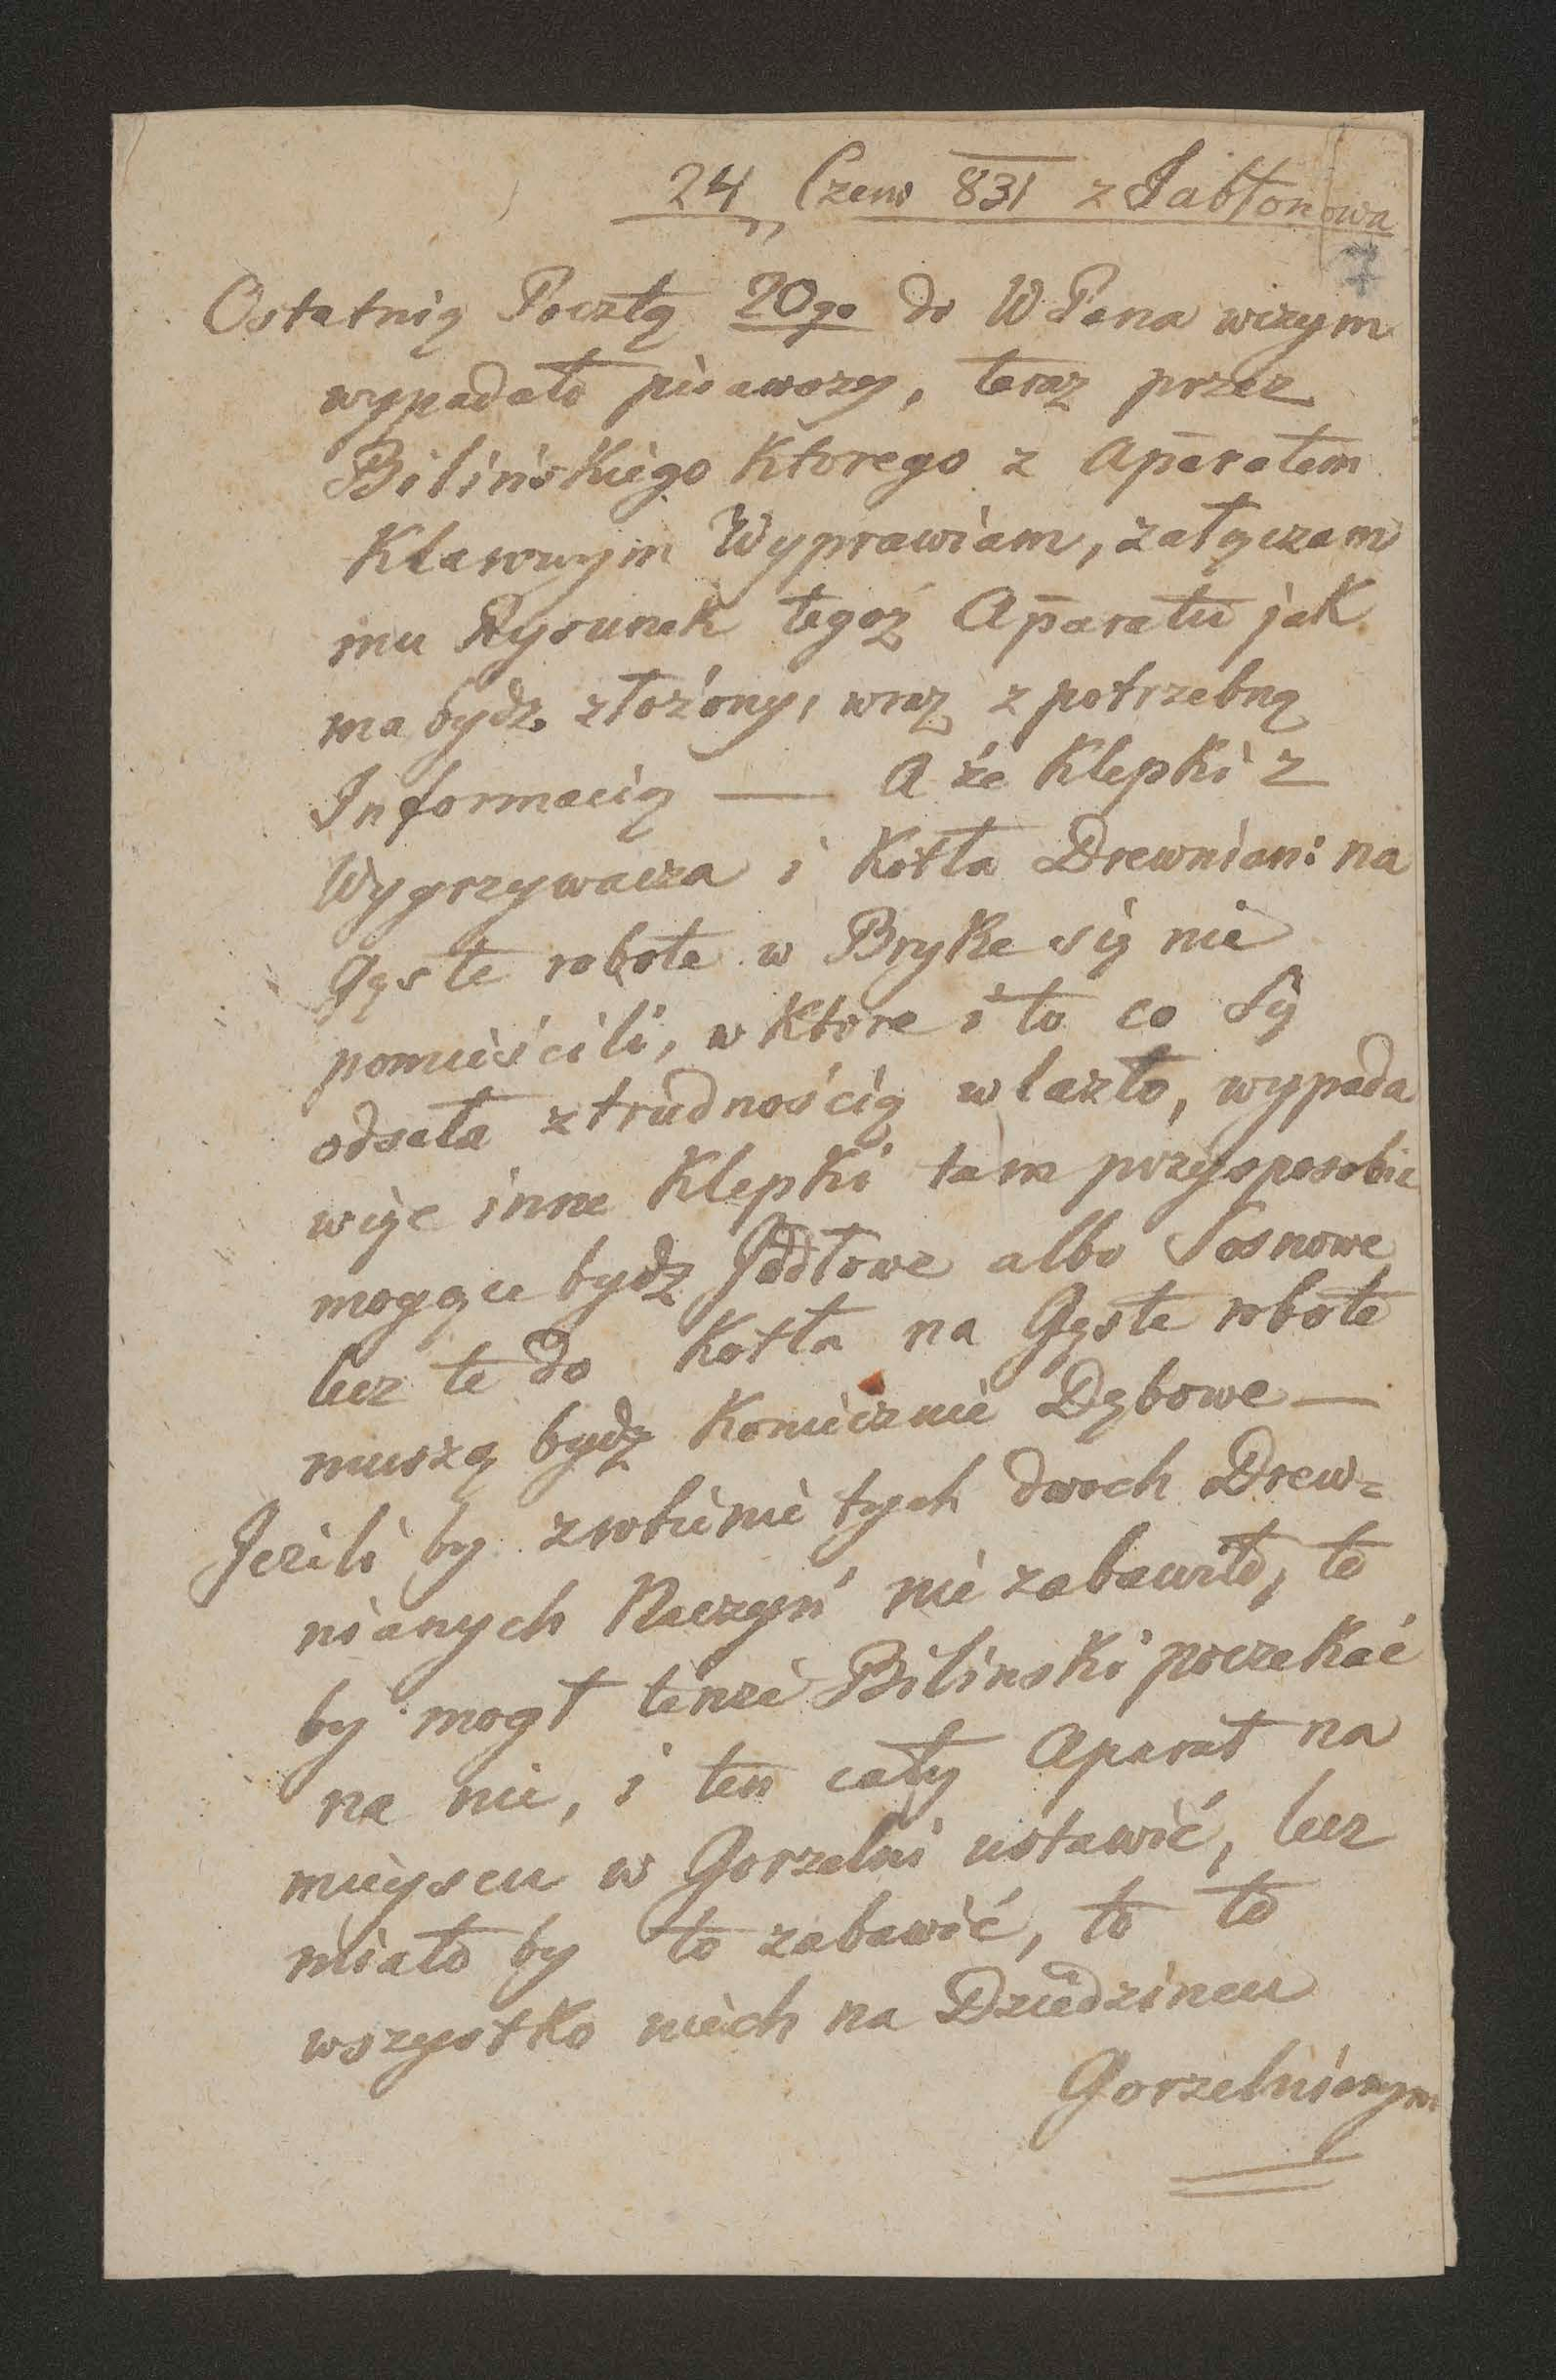 24 Czerw 831 z Jabłonowa
7
Ostatnią Pocztą 20go do WPana w czym
wypadało pisawszy, teraz przez
Bilińskiego Ktorego z Aparatem
Klarowym Wyprawiam, załączam
mu Rysunek tegoż Aparatu jak
ma bydz złożony, wraz z potrzebną
Informacią — A że Klepki z
Wygrzywacza i Kotła Drewnian: na
Gęste robote w Bryke się nie
pomieścili, w Ktore i to co się
odsela z trudnością wlazło, wypada
więc inne Klepki tam przysposobic
mogące bydz Jodłowe albo Sosnowe
lecz te do Kotła na Gęste robote
muszą bydz Koniecznie Dębowe —
Jezili by zrobienie tych dwoch Drew=
nianych Naczyń nie zabawiło, to
by mogł tenże Bilinski poczekać
na nie, i ten cały Aparat na
mieyscu w Gorzelni ustawić, lecz
miało by to zabawić, to to
wszystko niech na Dziedzincu
Gorzelnianym